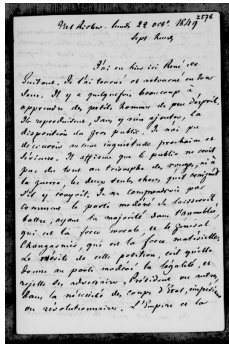 2576
Val Richer - lundi 22 oct. 1849
Sept heures
J'ai eu hier ici René de
Guitaut. Je l'ai tourné et retourné en tous
sens. Il y a quelquefois beaucoup à
apprendre des petits hommes de peu d'esprit.
Ils reproduisent, sans y rien ajouter, la
disposition du gros public. Je n'ai pu
découvrir aucune inquiétude prochaine et
sérieuse. Il affirme que le public ne croit
pas du tout au triomphe des rouges, ni à
la guerre, les deux seules choses qu'il craignit
s'il y croyait. Je ne comprendrois pas
comment le parti modéré se laisseroit
battre, ayant la majorité dans l'assemblée,
qui est la force morale, et le général
Changarnier, qui est la force matérielle.
Le mérite de cette position, c'est qu'elle
donne au parti modéré la légalité, et
rejette ses adversaires, Président ou autres,
dans la nécessité des coups d'État, impériaux
ou révolutionnaires. L'Empire et la